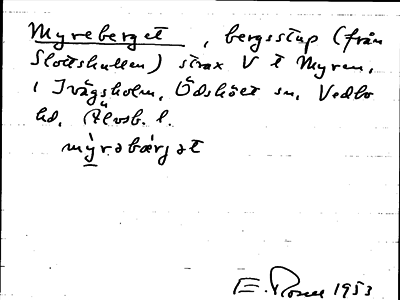 Myreberget, bergsstup (från
Slottskullen) strax V t Myren,
i Ivägsholm, Ödskölt sn, Vedbo
hd, Älvsb. l.
mỳ̱rəbær̀gət
E. Rosell 1953